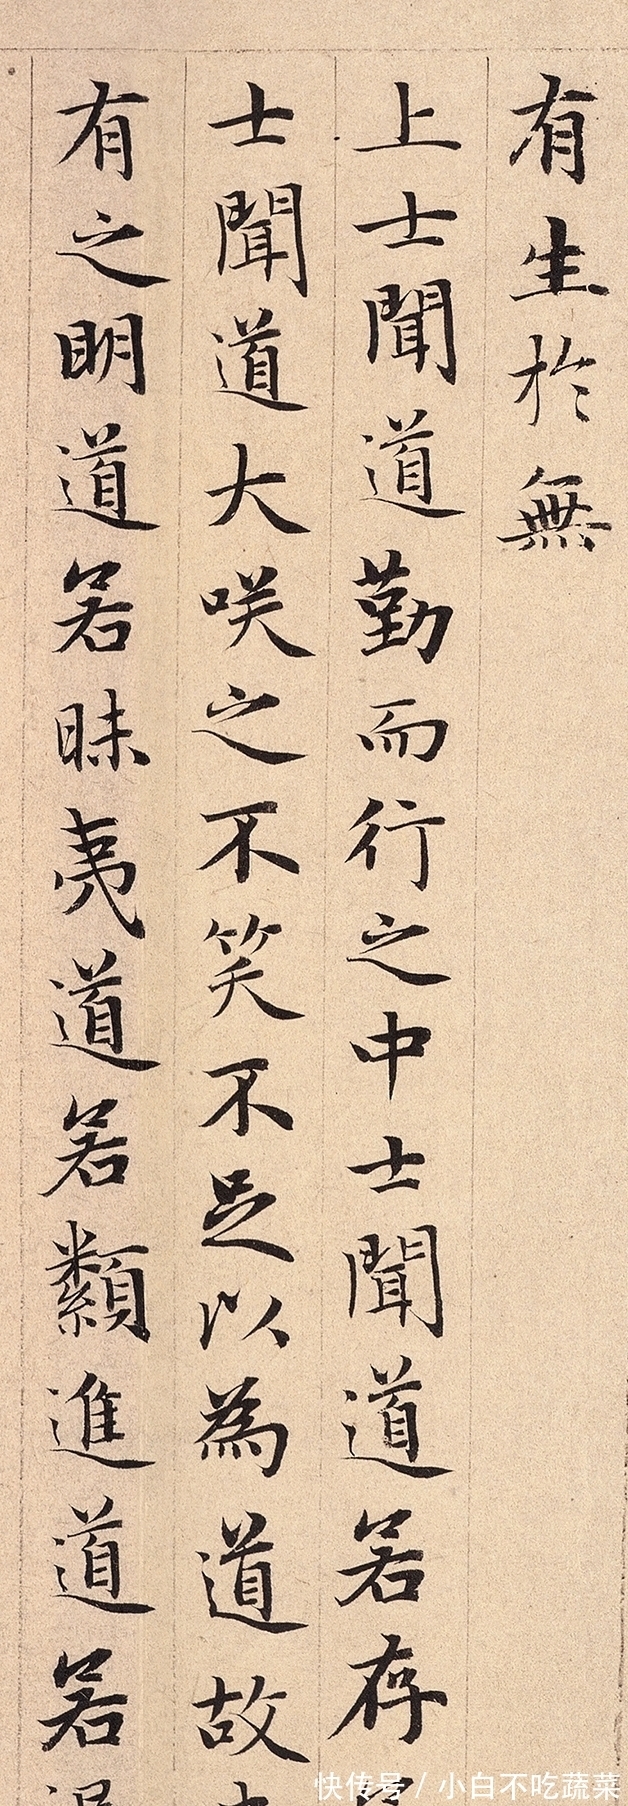 有生於無
上士聞道勤而行之中士聞道若存
士聞道大咲之不笑不足以為道故
有之明道若昧夷道若纇進道若
快传号/小白不吃蔬菜